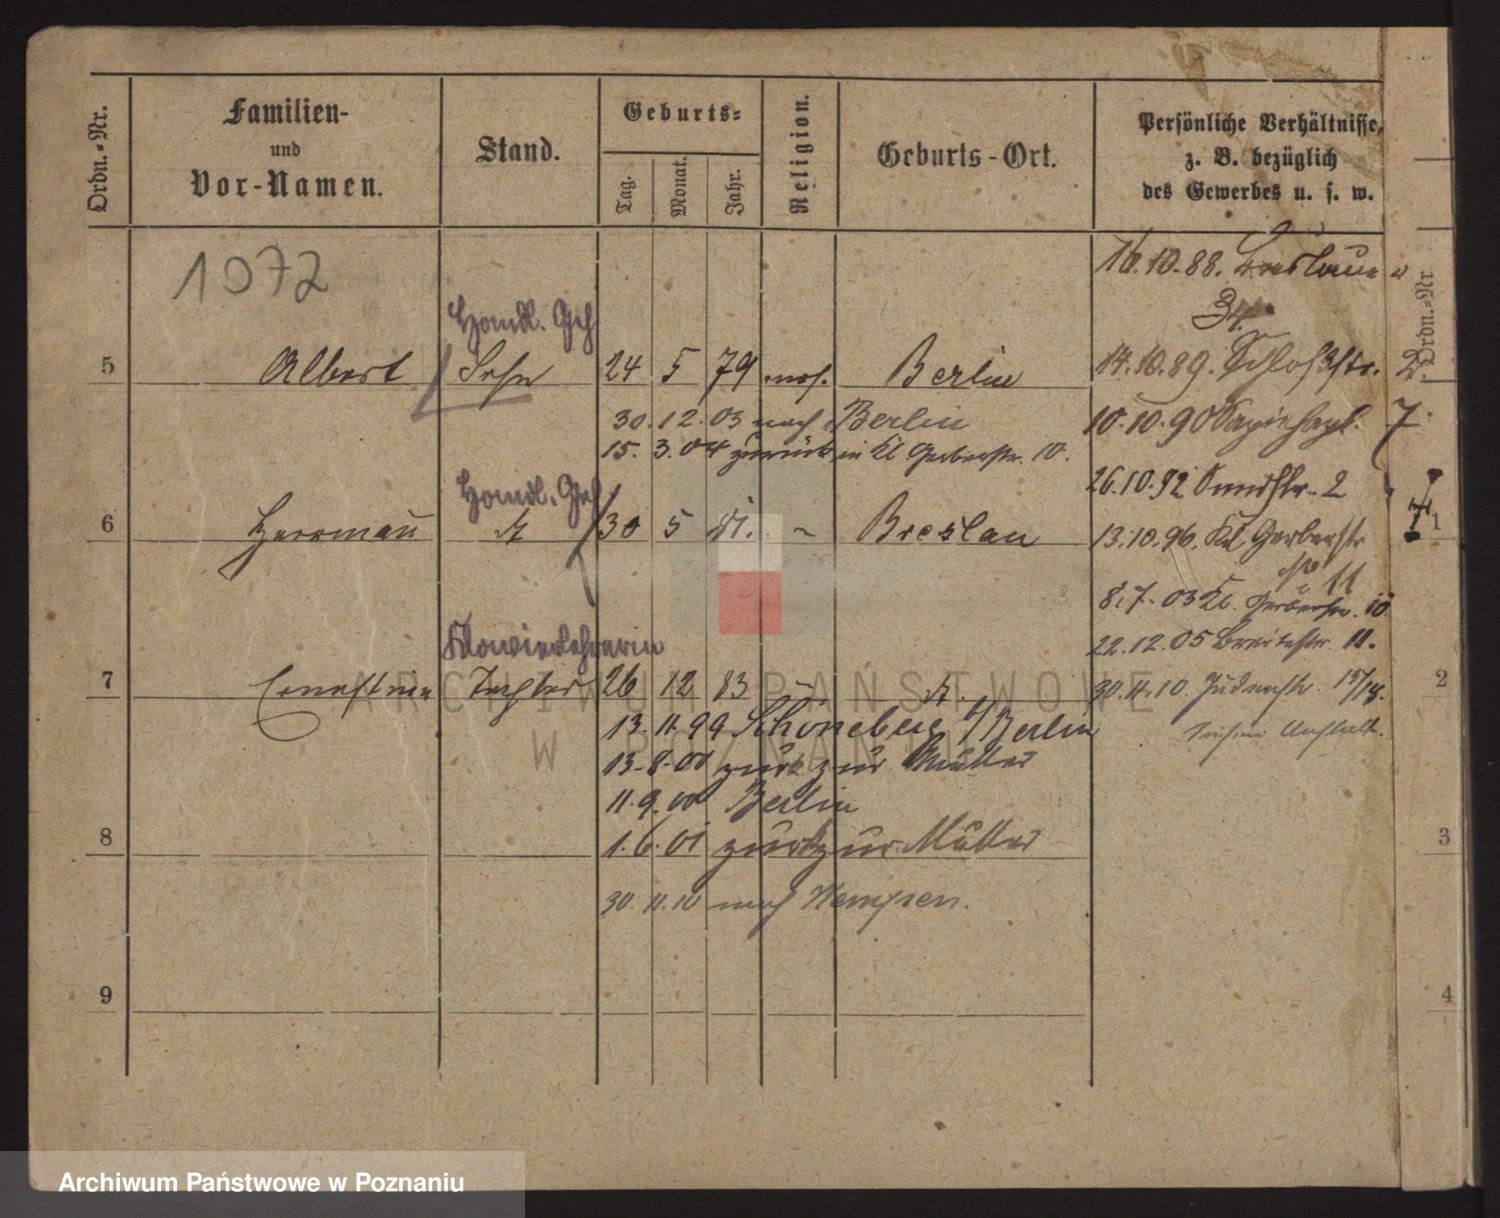 Ordn.-Nr.
Familien-
und
Vor-Namen.
Stand.
Geburts-
Tag.
Monat.
Jahr.
Religion.
Geburts-Ort.
Persönliche Verhältnisse,
z. B. bezüglich
des Gewerbes u. s. w.
1072
16.10.88. Breslauer
34
Handl. Geh
5 Albert Sohn 24 5 79 mos. Berlin
14.10.89. Schloßstr. 2
30.12.03 nach Berlin
10.10.90 Sapiehapl. 7
15.3.04 zurück in Kl. Gerberstr. 10.
26.10.92 2
Handl. Geh
6 Herrmann 30 5 81. Breslau
13.10.96. Kl Gerberstr
11
8.7.03 Kl. Gerberstr. 10
Klavierlehrerin
22.12.05 Breitestr. 11.
7 Ernestine Tochter 26 12 83
30.11.10. Judenstr 15/18.
13.11.99 Schöneberg b/Berlin
13.8.00 zurk zur Mutter
11.9.00 Berlin
8 1.6.01 zurk zur Mutter
30.11.10 nach Kempen.
9
Ordn.-Nr
1
2
3
4
ARCHIWUM PAŃSTWOWE
W POZNANIU
Archiwum Państwowe w Poznaniu